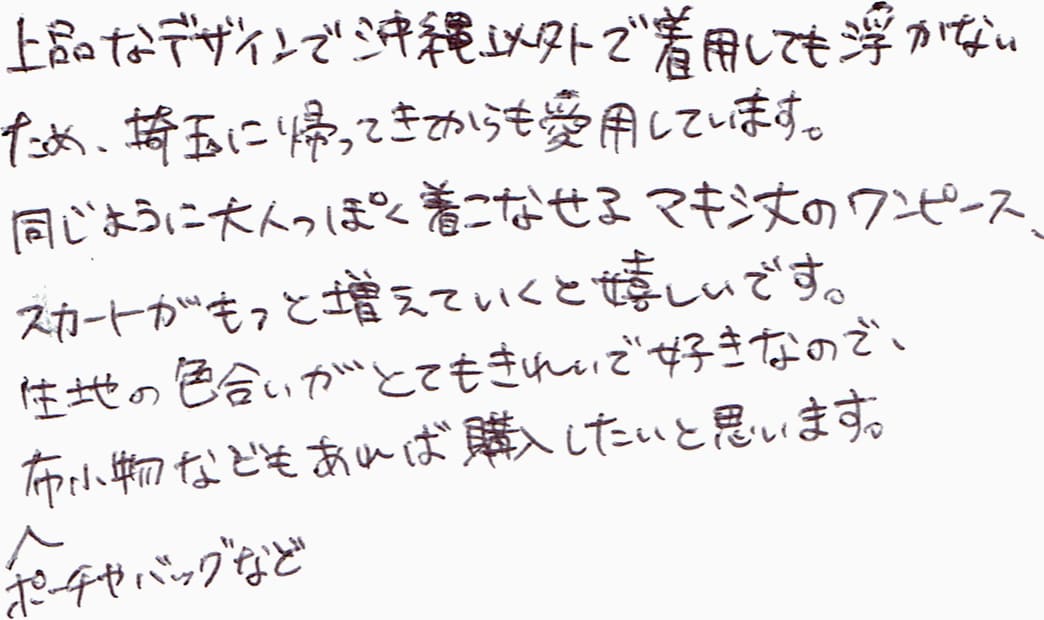 上品なデザインで沖縄以外で着用しても浮かない
ため、埼玉に帰ってきてからも愛用しています。
同じように大人っぽく着こなせるマキシ丈のワンピース、
スカートがもっと増えていくと嬉しいです。
生地の色合いがとてもきれいで好きなので、
布小物などもあれば購入したいと思います。
ポーチやバッグなど